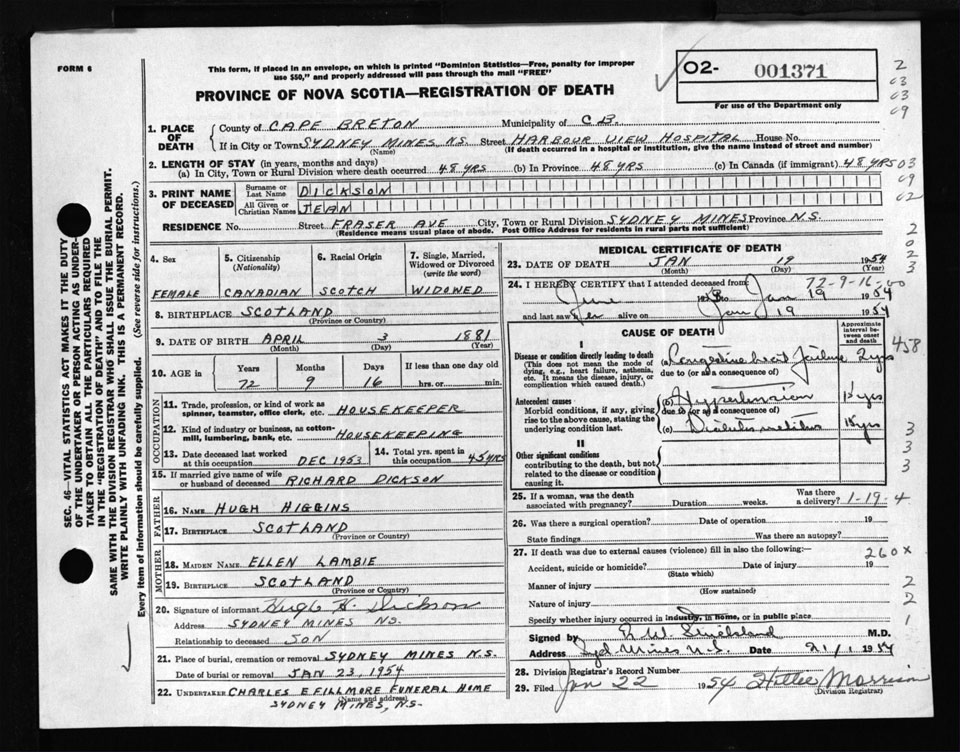 FORM 6
This form, if placed in an envelope, on which is printed "Dominion Statistics—Free, penalty for improper
use $50," and properly addressed will pass through the mail "FREE"
PROVINCE OF NOVA SCOTIA—REGISTRATION OF DEATH
O2- 001371
For use of the Department only
2
03
03
09
SEC. 46—VITAL STATISTICS ACT MAKES IT THE DUTY
OF THE UNDERTAKER OR PERSON ACTING AS UNDER-
TAKER TO OBTAIN ALL THE PARTICULARS REQUIRED
IN THE "REGISTRATION OF DEATH" AND TO FILE THE
SAME WITH THE DIVISION REGISTRAR WHO SHALL ISSUE THE BURIAL PERMIT.
WRITE PLAINLY WITH UNFADING INK. THIS IS A PERMANENT RECORD.
Every item of information should be carefully supplied. (See reverse side for instructions.)
1. PLACE OF DEATH
County of CAPE BRETON Municipality of C B.
If in City or Town SYDNEY MINES NS. Street HARBOUR VIEW HOSPITAL House No.
(Name) (If death occurred in a hospital or institution, give the name instead of street and number)
2. LENGTH OF STAY (in years, months and days)
(a) In City, Town or Rural Division where death occurred 48 YRS (b) In Province 48 YRS. (c) In Canada (if immigrant) 48 YRS 03
09
02
3. PRINT NAME OF DECEASED
Surname or Last Name DICKSON
All Given or Christian Names JEAN
RESIDENCE No. Street FRASER AVE City, Town or Rural Division SYDNEY MINES Province N.S.
(Residence means usual place of abode. Post Office Address for residents in rural parts not sufficient)
2
0
2
3
4. Sex
FEMALE
5. Citizenship
(Nationality)
CANADIAN
6. Racial Origin
SCOTCH
7. Single, Married,
Widowed or Divorced
(write the word)
WIDOWED
8. BIRTHPLACE SCOTLAND
(Province or Country)
9. DATE OF BIRTH APRIL 3 1881
(Month) (Day) (Year)
10. AGE in Years Months Days If less than one day old
72 9 16 hrs. or min.
OCCUPATION
11. Trade, profession, or kind of work as
spinner, teamster, office clerk, etc. HOUSEKEEPER
12. Kind of industry or business, as cotton-
mill, lumbering, bank, etc. HOUSEKEEPING
13. Date deceased last worked
at this occupation DEC 1953
14. Total yrs. spent in
this occupation 45 YRS
15. If married give name of wife
or husband of deceased RICHARD DICKSON
FATHER
16. NAME HUGH HIGGINS
17. BIRTHPLACE SCOTLAND
(Province or Country)
MOTHER
18. MAIDEN NAME ELLEN LAMBIE
19. BIRTHPLACE SCOTLAND
(Province or Country)
20. Signature of informant Hugh H. Dickson
Address SYDNEY MINES NS.
Relationship to deceased SON
21. Place of burial, cremation or removal SYDNEY MINES N.S.
Date of burial or removal JAN 23, 1954
22. UNDERTAKER CHARLES E FILLMORE FUNERAL HOME
(Name and address)
SYDNEY MINES, N.S.
MEDICAL CERTIFICATE OF DEATH
23. DATE OF DEATH JAN 19 1954
(Month) (Day) (Year)
72-9-16-00
24. I HEREBY CERTIFY that I attended deceased from:
June to Jan 19 1954
and last saw her alive on Jan 19 1954
CAUSE OF DEATH
Approximate
interval be-
tween onset
and death
458
I
Disease or condition directly leading to death
(This does not mean the mode of
dying, e.g., heart failure, asthenia,
etc. It means the disease, injury, or
complication which caused death.)
(a) Congestive heart failure 2 yrs
due to (or as a consequence of)
Antecedent causes
Morbid conditions, if any, giving
rise to the above cause, stating the
underlying condition last.
(b) Hypertension 15 yrs
due to (or as a consequence of)
(c) Diabetes mellitus 15 yrs
II
Other significant conditions
contributing to the death, but not
related to the disease or condition
causing it.
3
3
3
25. If a woman, was the death
associated with pregnancy? Duration weeks. Was there
a delivery? 1-19-4
26. Was there a surgical operation? Date of operation 19
State findings Was there an autopsy?
27. If death was due to external causes (violence) fill in also the following:— 260 X
Accident, suicide or homicide? Date of injury 19
(State which)
Manner of injury 2
(How sustained)
Nature of injury 2
Specify whether injury occurred in industry, in home, or in public place 1
Signed by M.D.
Address Syd. Mines N.S. Date 21/1 1954
28. Division Registrar's Record Number
29. Filed Jan 22 1954 Morrison
(Division Registrar)